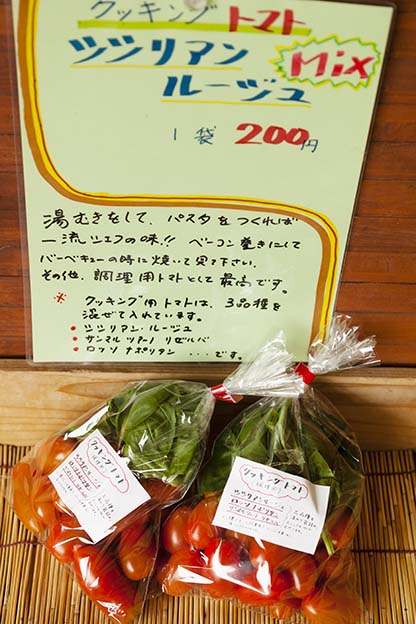 クッキング トマト
シシリアン Mix
ルージュ
1袋 200円
湯むきをして、パスタをつくれば
一流シェフの味!! ベーコン巻きにして
バーベキューの時に焼いて見て下さい。
その他、調理用トマトとして最高です。
※ クッキング用トマトは、3品種を
混ぜて入れています。
・シシリアン・ルージュ
・サンマルツァーノ リゼルバ
・ロッソ ナポリタン ・・・です。
クッキングトマト
クッキングトマト
シシリアンルージュ
ロッソナポリタン